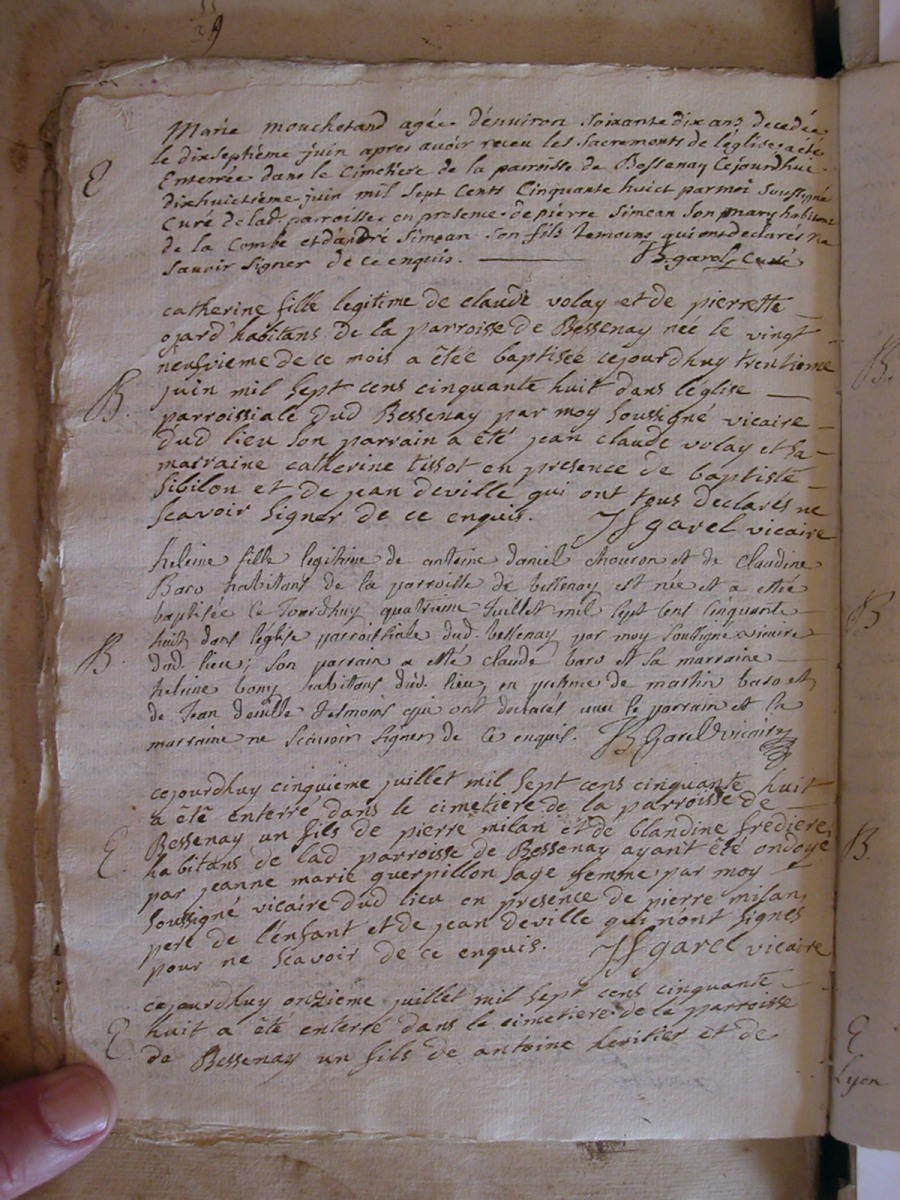 29
Marie mouchetand agée d'environ soixante dix ans decedée
le dixseptième juin apres avoir receu les sacrements de l'église a été
E
Enterrée dans le Cimetière de la parroisse de Bessenay Cejourdhui
dixhuictième juin mil sept cents Cinquante huict par moi soussigné
Curé de lad. parroisse en presence de pierre Simean son mary habitant
de la Combe et d'andré Simean son fils temoins qui ont declarés ne
savoir signer de ce enquis. garel Curé
catherine fille legitime de claude volay et de pierrette
ojard habitans de la parroisse de Bessenay née le vingt
neufvieme de ce mois a étée baptisée cejourdhuy trentieme
juin mil sept cens cinquante huit dans l'église
B.
parroissiale dud Bessenay par moy soussigné vicaire
dud lieu son parrain a été jean claude volay et sa
marraine catherine tissot en presence de baptiste
sibilon et de jean deville qui ont tous declarés ne
scavoir signer de ce enquis. garel vicaire
heleine fille legitime de antoine daniel chouron et de claudine
Baro habitans de la parroisse de bessenay est née et a etée
baptisée ce Jourdhuy quatrieme Juillet mil sept cens cinquante
huit dans l'église parroissiale dud. bessenay par moy soussigné vicaire
B.
dud. lieu, son parrain a eté claude baro et sa marraine
heleine bony habitans dud. lieu, en presence de martin baro et
de Jean deville tesmoins qui ont declarés avec le parrain et la
marraine ne scavoir signer de ce enquis. Garel vicaire
cejourdhuy cinquieme juillet mil sept cens cinquante huit
a été enterré dans le cimetiere de la parroisse de
Bessenay un fils de pierre milan et de blandine fredière
E.
habitans de lad parroisse de Bessenay ayant été ondoyé
par jeanne marie guerpillon sage femme par moy
soussigné vicaire dud lieu en presence de pierre milan
pere de l'enfant et de jean deville qui n'ont signés
pour ne scavoir de ce enquis. garel vicaire
cejourdhuy onzieme juillet mil sept cens cinquante
E.
huit a été enterré dans le cimetiere de la parroisse
de Bessenay un fils de antoine heritier et de
B.
B
B.
E
Lyon